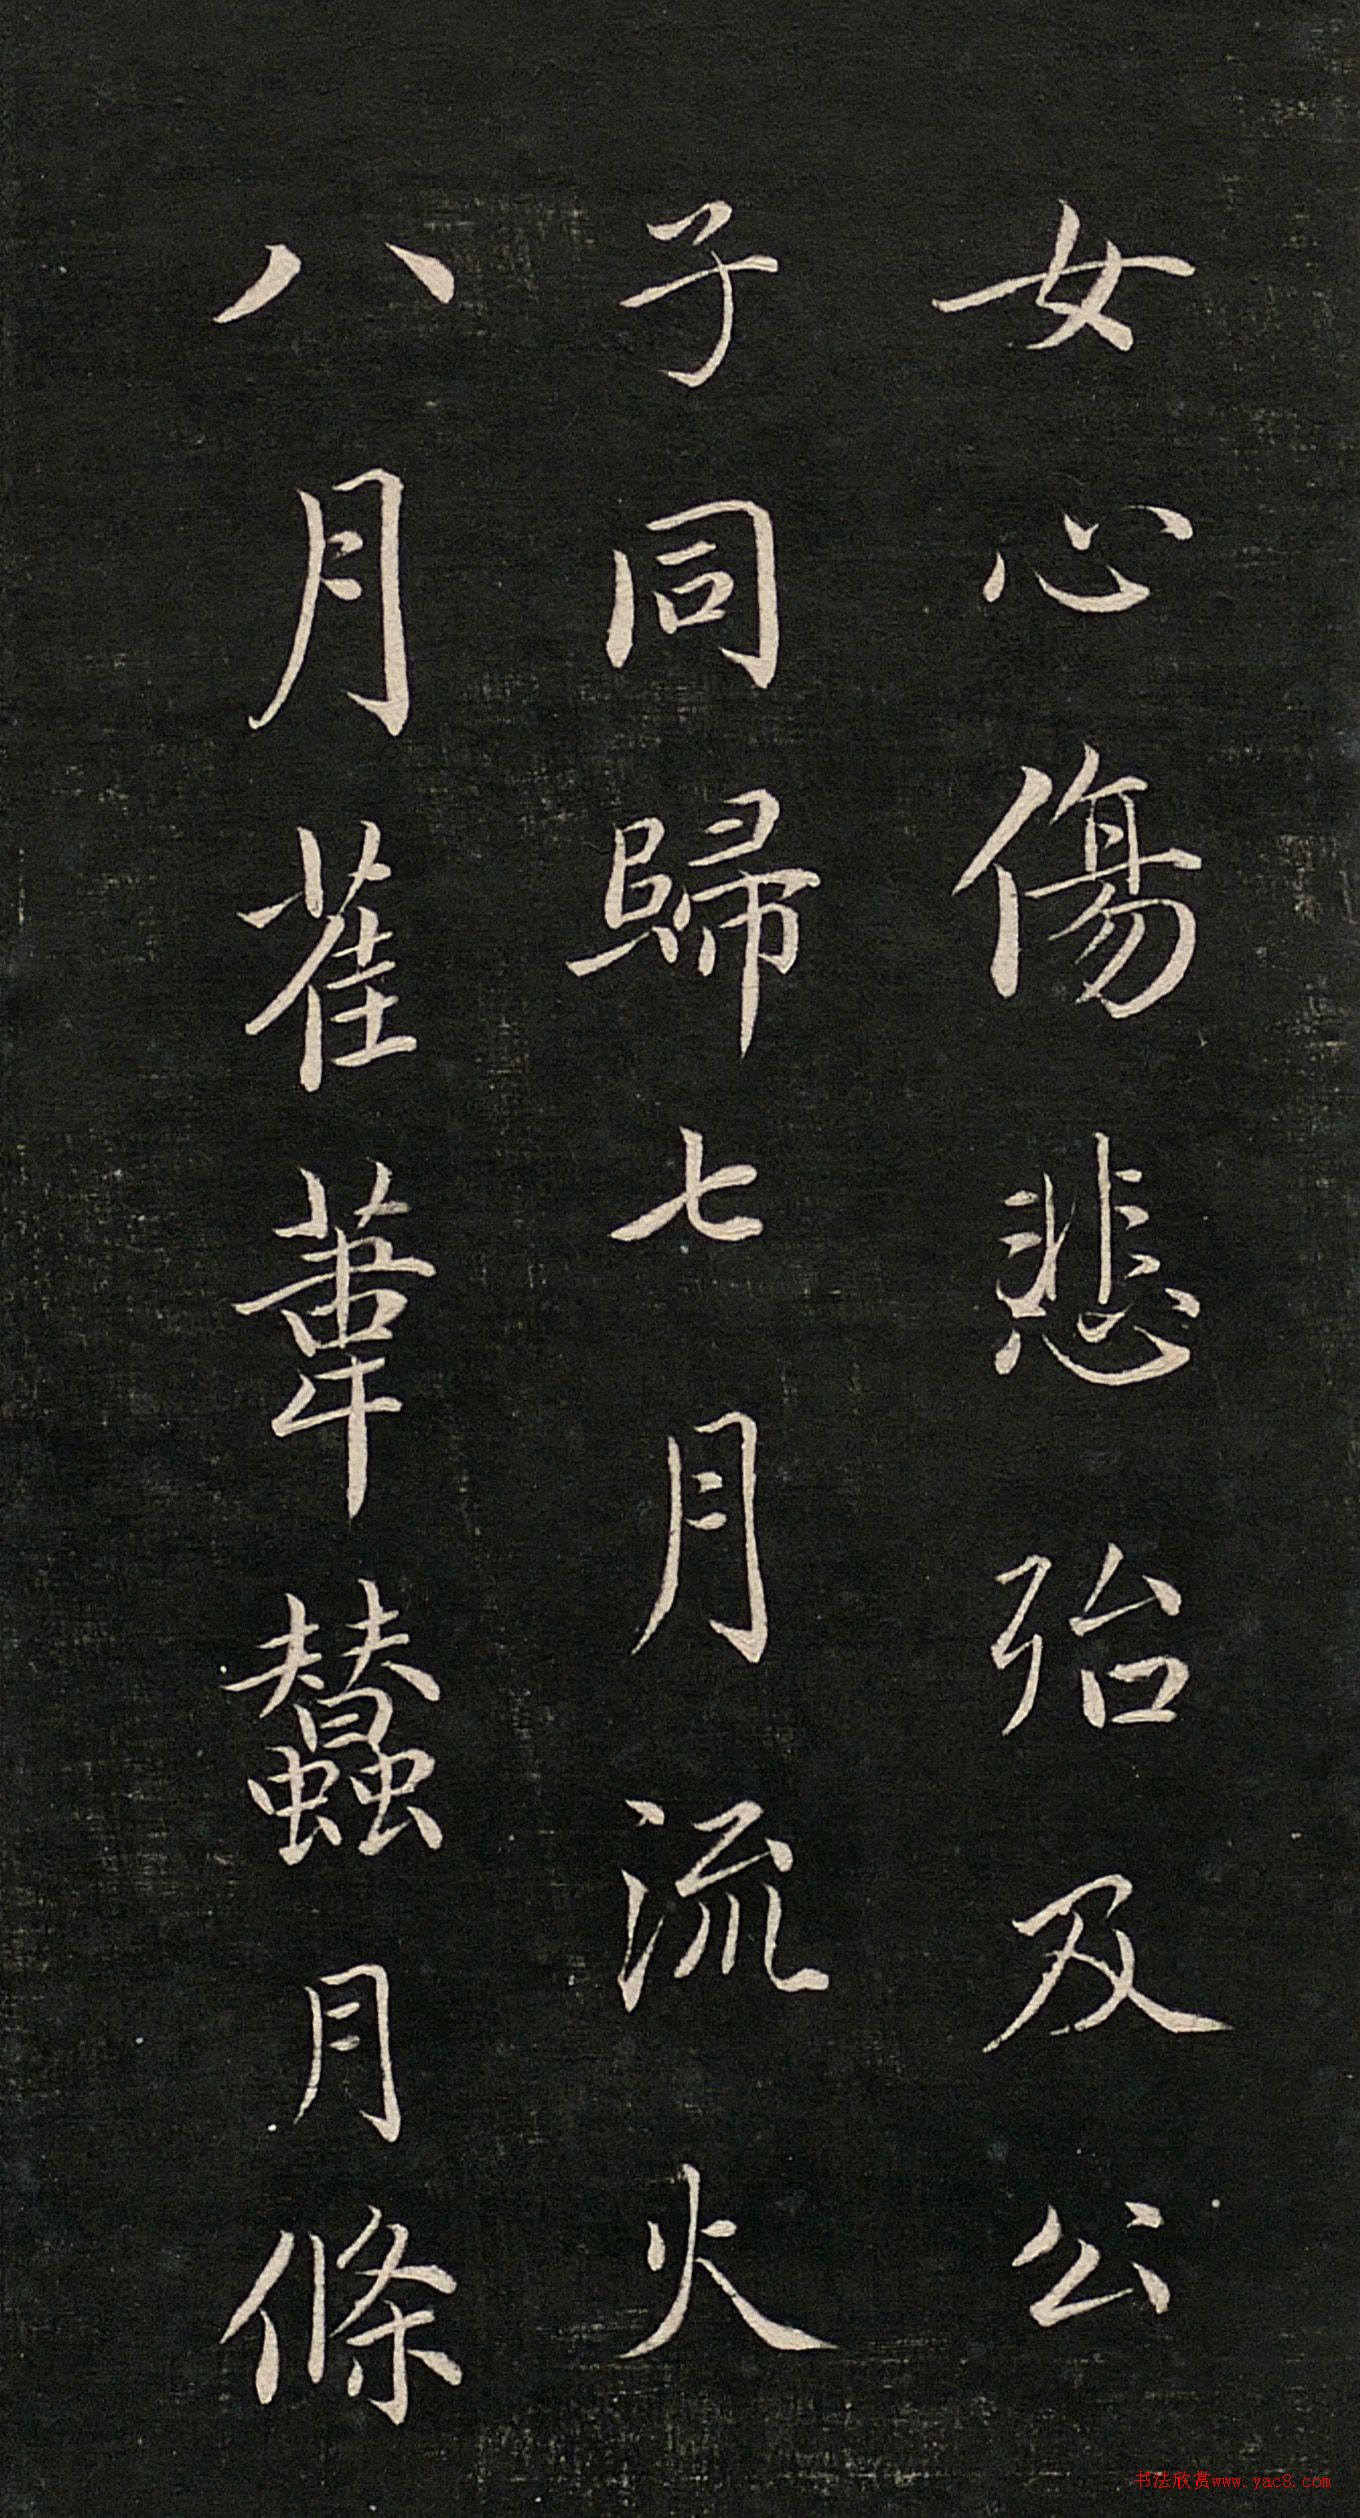 女心傷悲殆及公
子同歸七月流火
八月萑葦蠶月條
书法欣赏www.yac8.com